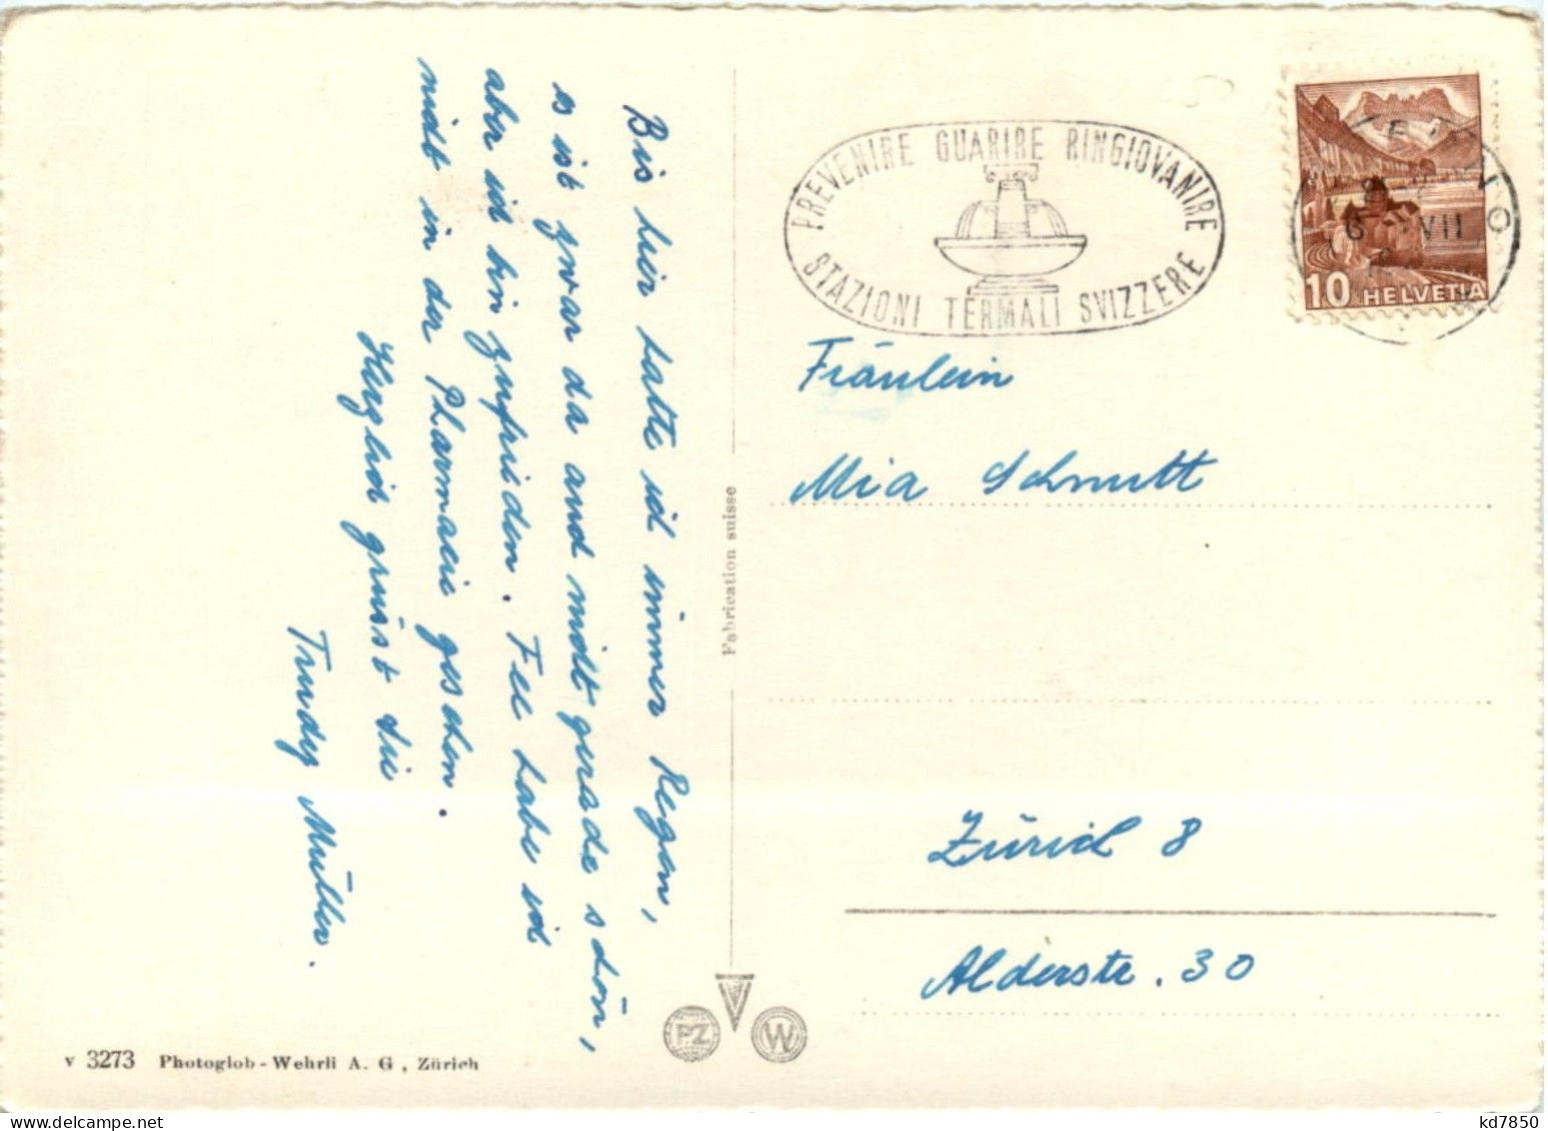 Bis hier hatte ich immer Regen,
es ist zwar da auch nicht gerade schön,
aber ich bin zufrieden. Fee habe ich
nicht in der Pharmacie gesehen.
Herzlich grüsst die
Trudy Müller.
PREVENIRE GUARIRE RINGIOVANIRE
STAZIONI TERMALI SVIZZERE
VII
10 HELVETIA
Fräulein
Mia Schmutt
Zürich 8
Alderstr. 30
Fabrication suisse
PZ W
v 3273 Photoglob-Wehrli A. G., Zürich
kd7850